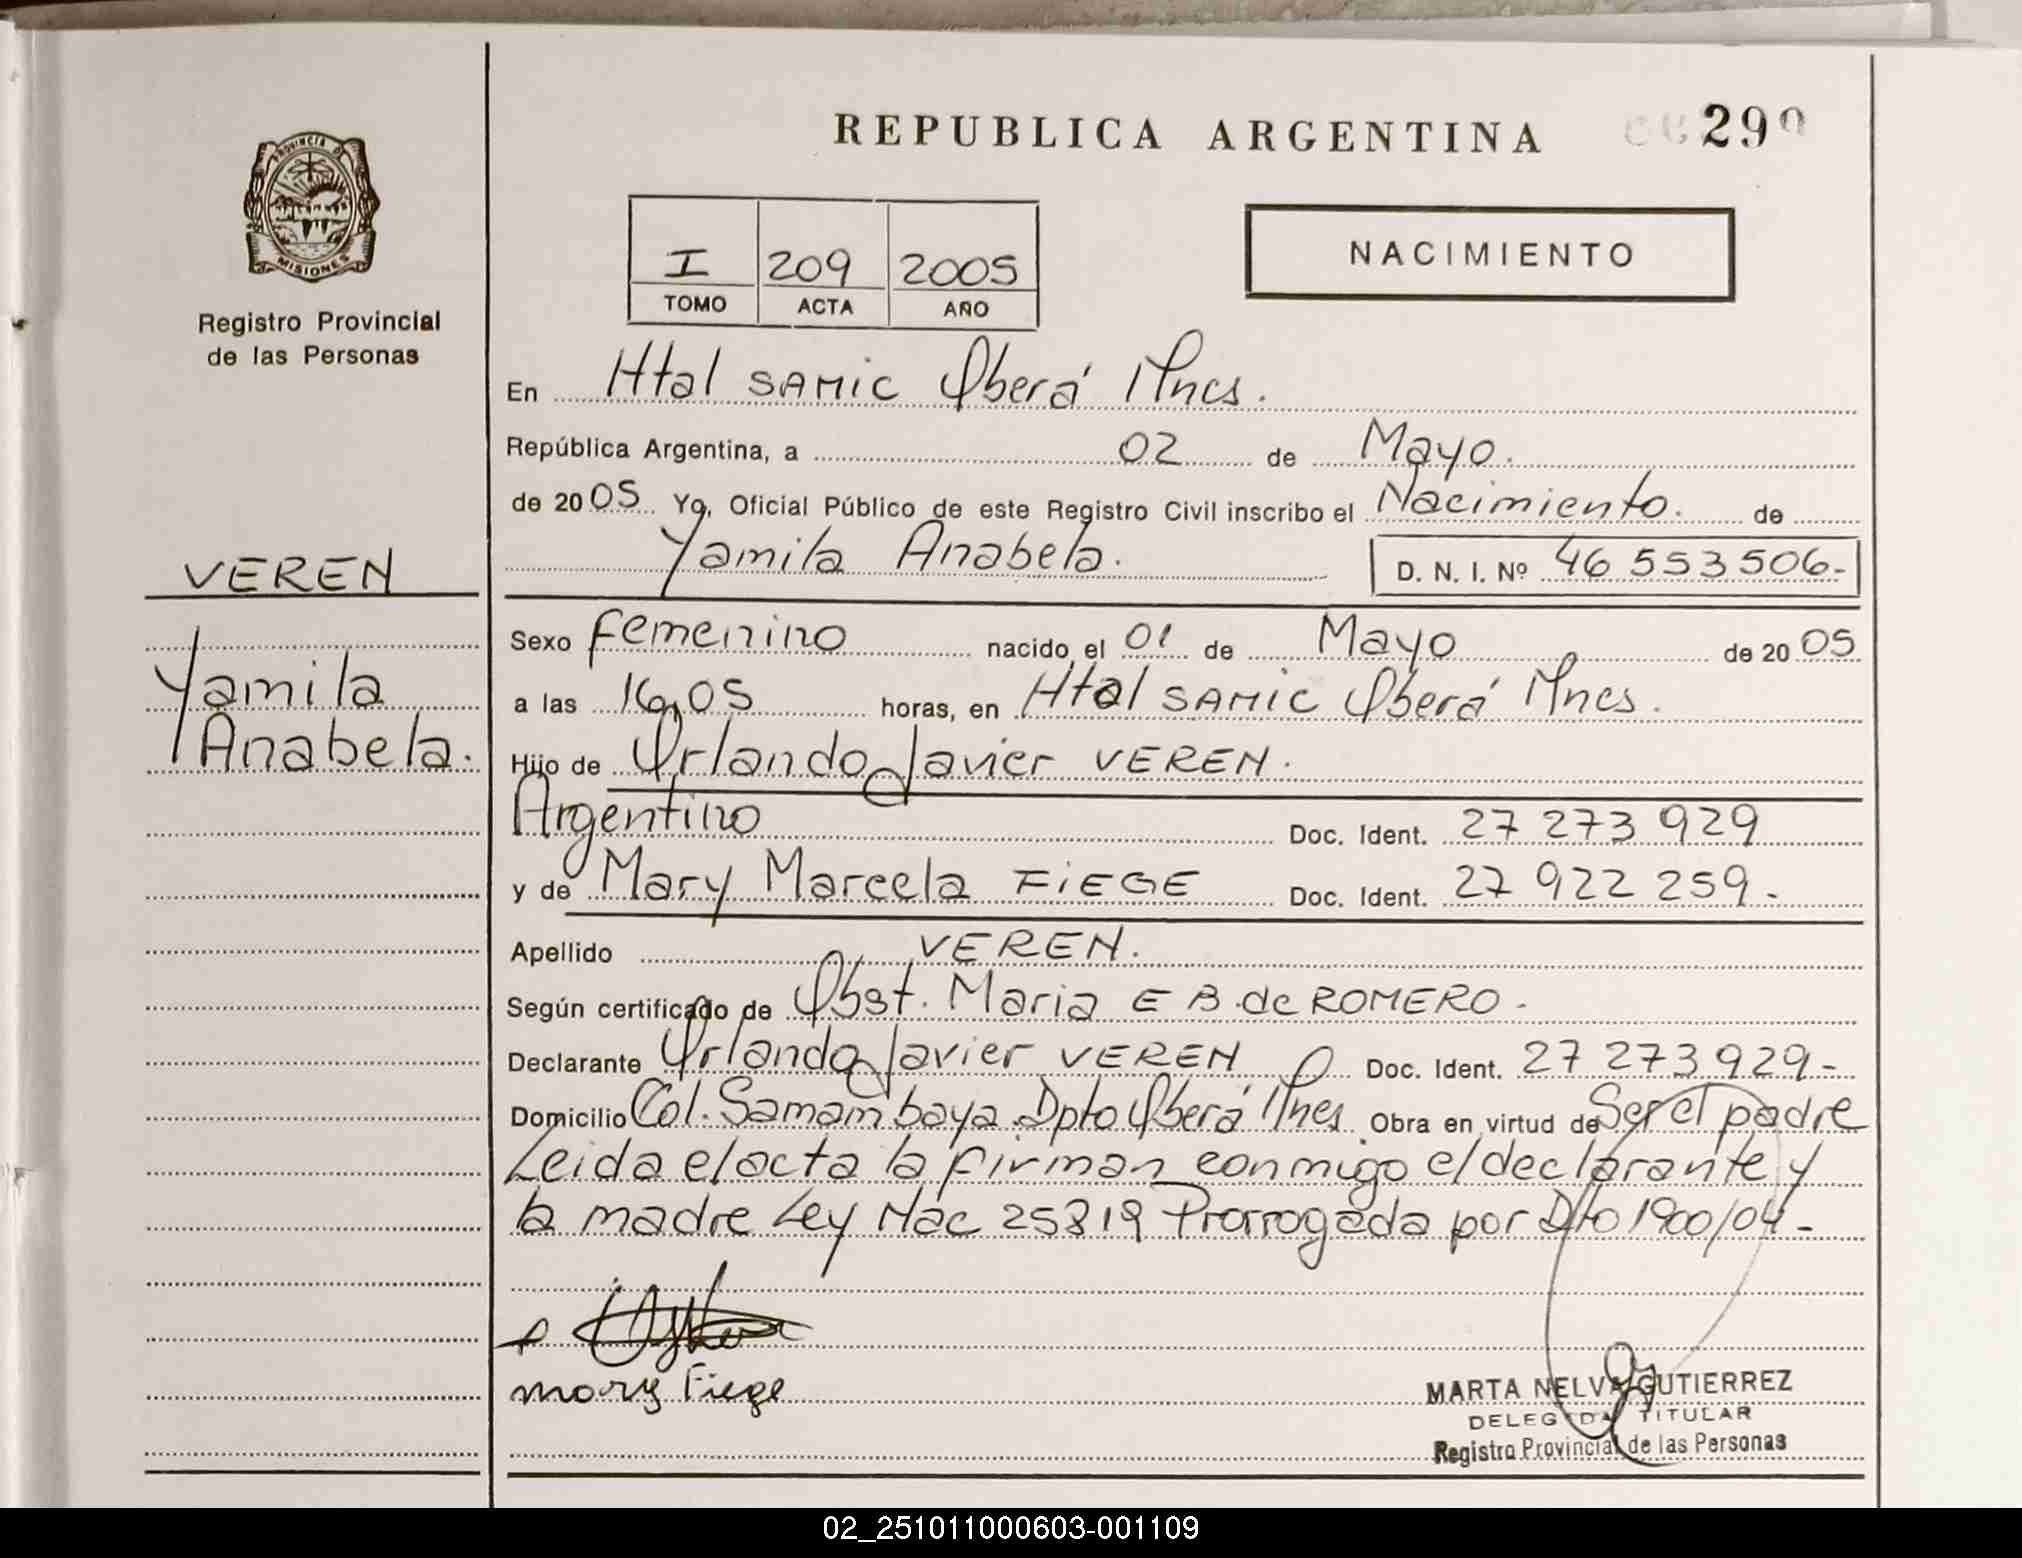 REPUBLICA ARGENTINA 290
PROVINCIA DE MISIONES
Registro Provincial
de las Personas
I 209 2005
TOMO ACTA AÑO
NACIMIENTO
En Htal SAMIC Oberá Mnes.
República Argentina, a 02 de Mayo.
de 2005. Yo, Oficial Público de este Registro Civil inscribo el Nacimiento. de
Yamila Anabela. D. N. I. Nº 46 553 506-
VEREN
Yamila
Anabela.
Sexo femenino nacido el 01 de Mayo de 2005
a las 16,05 horas, en Htal SAMIC Oberá Mnes.
Hijo de Orlando Javier VEREN.
Argentino Doc. Ident. 27 273 929
y de Mary Marcela FIEGE Doc. Ident. 27 922 259-
Apellido VEREN.
Según certificado de Obst. Maria E B. de ROMERO-
Declarante Orlando Javier VEREN Doc. Ident. 27 273 929-
Domicilio Col. Samambaya Dpto Oberá Mnes. Obra en virtud de Ser el padre
Leida el acta la firman conmigo el declarante y
la madre Ley Nac 25819 Prorrogada por Dto 1900/04-
Mary Fiege
MARTA NELVA GUTIERREZ
DELEGADA TITULAR
Registro Provincial de las Personas
02_251011000603-001109